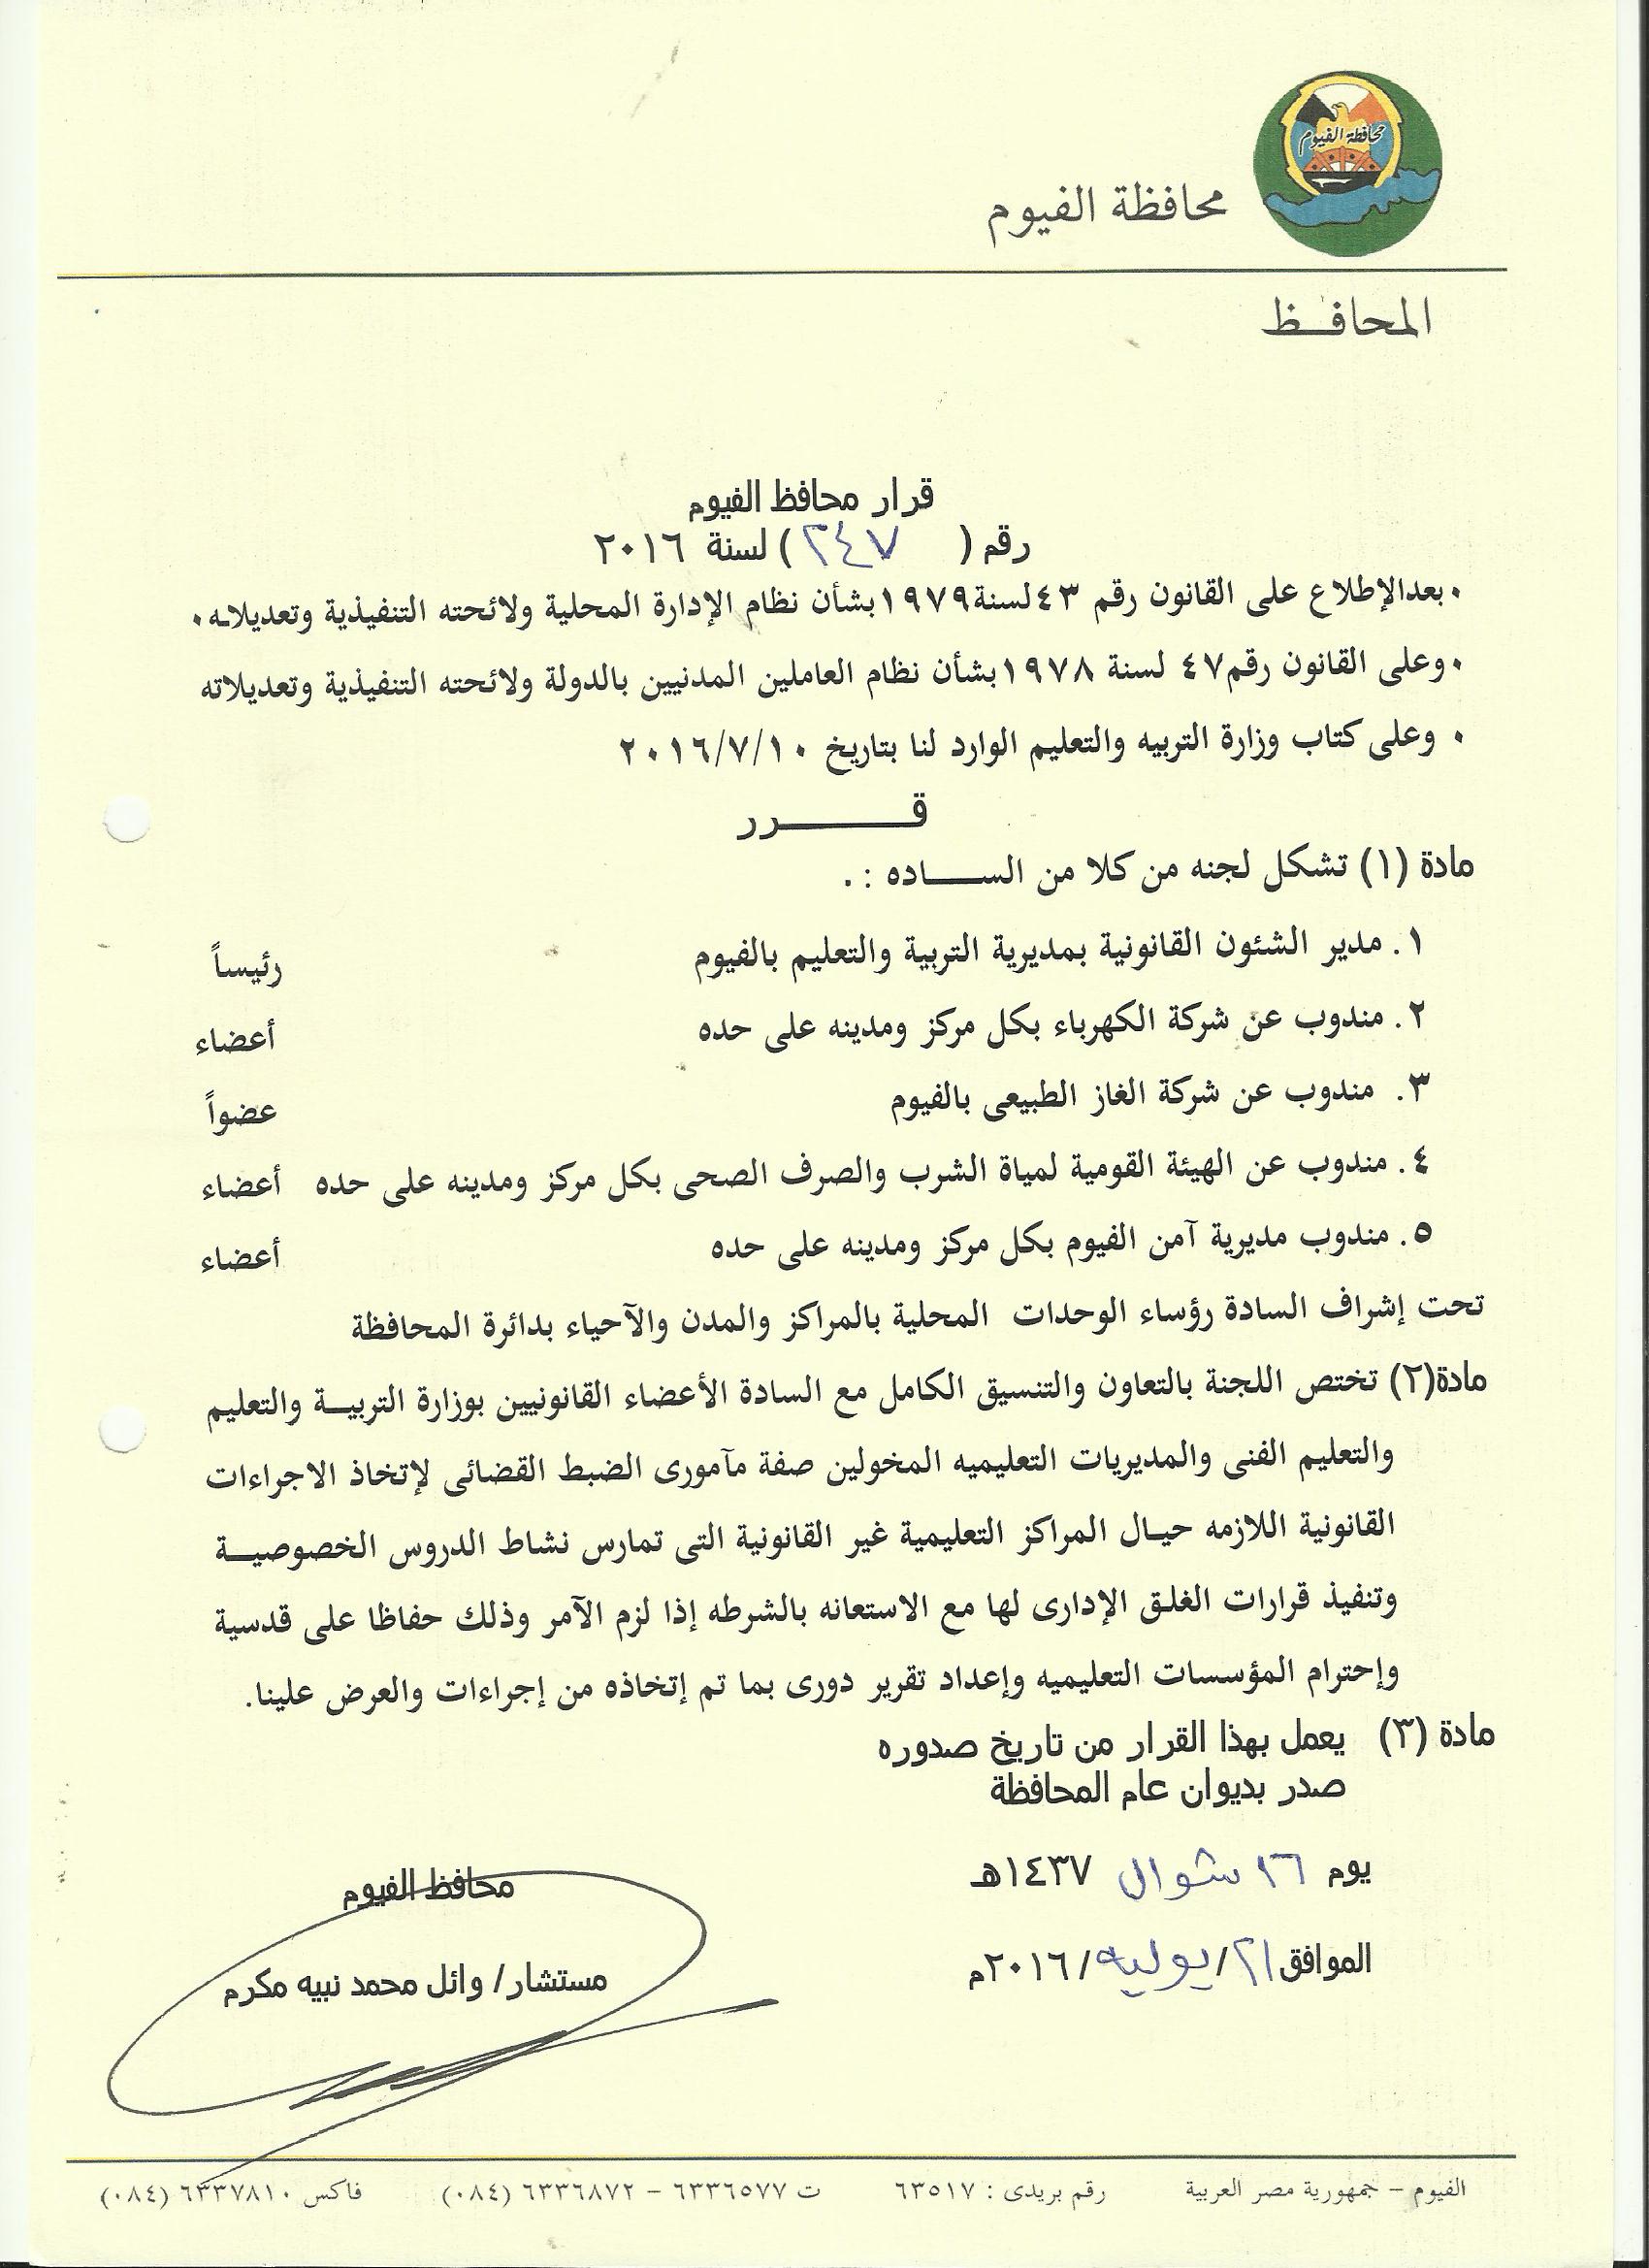 محافظة الفيوم
محافظة الفيوم
المحافــظ
قرار محافظ الفيوم
رقم ( ٢٤٧ ) لسنة ٢٠١٦
• بعدالإطلاع على القانون رقم ٤٣ لسنة ١٩٧٩ بشأن نظام الإدارة المحلية ولائحته التنفيذية وتعديلاته •
• وعلى القانون رقم ٤٧ لسنة ١٩٧٨ بشأن نظام العاملين المدنيين بالدولة ولائحته التنفيذية وتعديلاته
• وعلى كتاب وزارة التربيه والتعليم الوارد لنا بتاريخ ٢٠١٦/٧/١٠
قــــــــرر
مادة (١) تشكل لجنه من كلا من الســـــاده : .
١. مدير الشئون القانونية بمديرية التربية والتعليم بالفيوم رئيساً
٢. مندوب عن شركة الكهرباء بكل مركز ومدينه على حده أعضاء
٣. مندوب عن شركة الغاز الطبيعى بالفيوم عضواً
٤. مندوب عن الهيئة القومية لمياة الشرب والصرف الصحى بكل مركز ومدينه على حده أعضاء
٥. مندوب مديرية آمن الفيوم بكل مركز ومدينه على حده أعضاء
تحت إشراف السادة رؤساء الوحدات المحلية بالمراكز والمدن والآحياء بدائرة المحافظة
مادة(٢) تختص اللجنة بالتعاون والتنسيق الكامل مع السادة الأعضاء القانونيين بوزارة التربيــة والتعليم
والتعليم الفنى والمديريات التعليميه المخولين صفة مآمورى الضبط القضائى لإتخاذ الاجراءات
القانونية اللازمه حيـال المراكز التعليمية غير القانونية التى تمارس نشاط الدروس الخصوصيــة
وتنفيذ قرارات الغلق الإدارى لها مع الاستعانه بالشرطه إذا لزم الآمر وذلك حفاظا على قدسية
وإحترام المؤسسات التعليميه وإعداد تقرير دورى بما تم إتخاذه من إجراءات والعرض علينا.
مادة (٣) يعمل بهذا القرار من تاريخ صدوره
صدر بديوان عام المحافظة
يوم ١٦ شوال ١٤٣٧هـ
الموافق ٢١/يوليه/٢٠١٦م
محافظ الفيوم
مستشار/ وائل محمد نبيه مكرم
الفيوم – جمهورية مصر العربية رقم بريدى : ٦٣٥١٧ ت ٦٣٣٦٥٧٧ – ٦٣٣٦٨٧٢ (٠٨٤) فاكس ٦٣٣٧٨١٠ (٠٨٤)